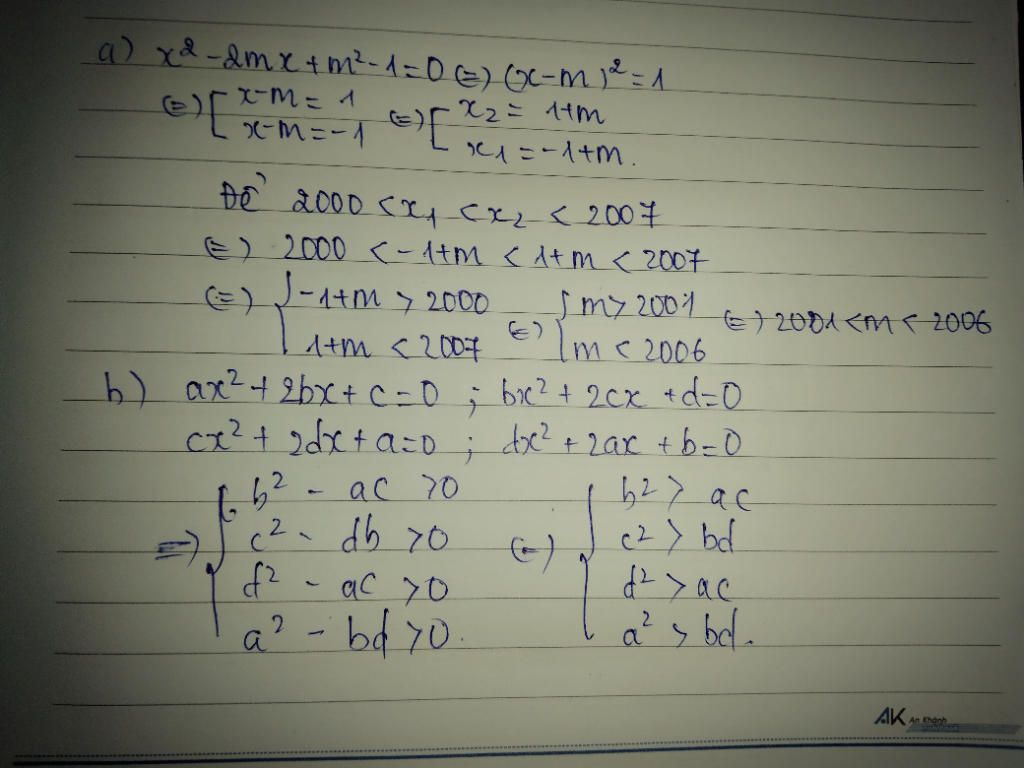 a) x² - 2mx + m² - 1 = 0 (=) (x-m)² = 1
(=) [ x-m = 1 (=) [ x₂ = 1+m
x-m = -1 x₁ = -1+m.
Để 2000 < x₁ < x₂ < 2007
(=) 2000 < -1+m < 1+m < 2007
(=) { -1+m > 2000 (=) { m > 2001 (=) 2001 < m < 2006
1+m < 2007 m < 2006
b) ax² + 2bx + c = 0 ; bx² + 2cx + d = 0
cx² + 2dx + a = 0 ; dx² + 2ax + b = 0
=) { b² - ac > 0 (=) { b² > ac
c² - db > 0 c² > bd
d² - ac > 0 d² > ac
a² - bd > 0. a² > bd.
AK An Khánh